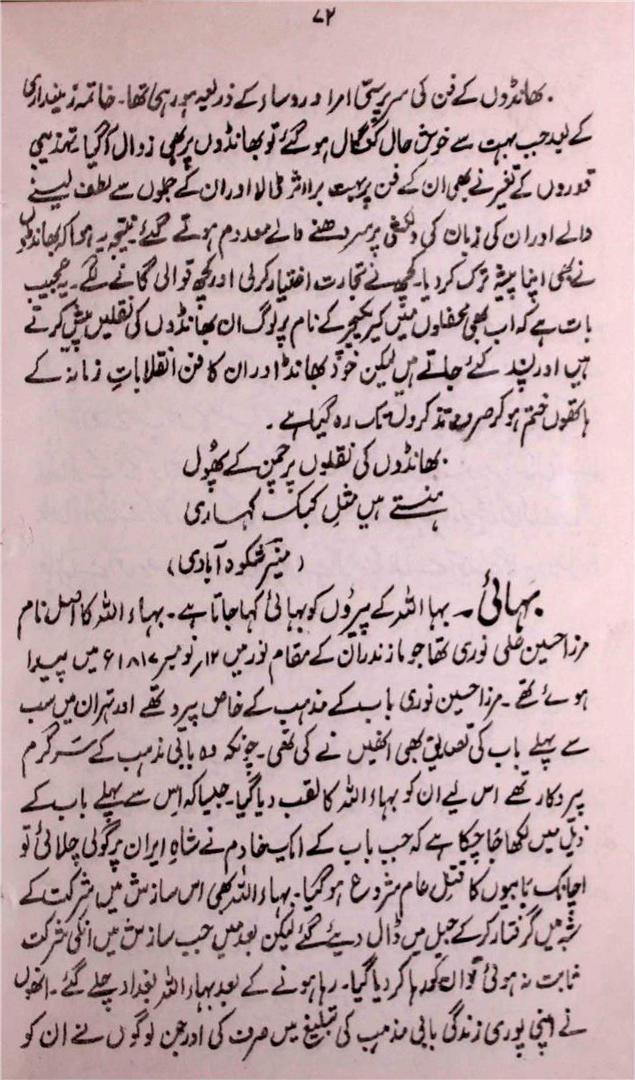 ۷۲
بھانڈوں کے فن کی سرپرستی امرا و روساء کے ذریعہ ہو رہی تھا۔ خاتمہ زمینداری
کے بعد جب بہت سے خوش حال کنگال ہو گئے تو بھانڈوں پر بھی زوال آ گیا۔ تہذیبی
قدروں کے تغیر نے بھی ان کے فن پر بہت برا اثر ڈالا اور ان کے جملوں سے لطف لینے
والے اور ان کی زبان کی دلکشی پر سر دھننے والے معدوم ہوتے گئے۔ نتیجہ یہ ہوا کہ بھانڈوں
نے بھی اپنا پیشہ ترک کر دیا۔ کچھ نے تجارت اختیار کر لی اور کچھ قوالی گانے لگے۔ یہ عجیب
بات ہے کہ اب بھی محفلوں میں کیریکیچر کے نام پر لوگ ان بھانڈوں کی نقلیں پیش کرتے
ہیں اور پسند کئے جاتے ہیں لیکن خود بھانڈ اور ان کا فن انقلاباتِ زمانہ کے
ہاتھوں ختم ہو کر صرف تذکروں تک رہ گیا ہے۔
بھانڈوں کی نقلوں پر چمن کے پھول
ہنستے ہیں مثلِ کبک کہساری
(منیر شکوہ آبادی)
بہائی۔ بہا اللہ کے پیروں کو بہائی کہا جاتا ہے۔ بہاء اللہ کا اصل نام
مرزا حسین علی نوری تھا جو ماژندران کے مقام نور میں ۱۲ر نومبر ۱۸۱۷ء میں پیدا
ہوئے تھے۔ مرزا حسین نوری باب کے مذہب کے خاص پیرو تھے اور تہران میں سب
سے پہلے باب کی تصدیق بھی انھیں نے کی تھی۔ چونکہ وہ بابی مذہب کے سرگرم
پیروکار تھے اس لیے ان کو بہاء اللہ کا لقب دیا گیا۔ جیسا کہ اس سے پہلے باب کے
ذیل میں لکھا جا چکا ہے کہ جب باب کے ایک خادم نے شاہِ ایران پر گولی چلائی تو
اچانک بابیوں کا قتلِ عام شروع ہو گیا۔ بہاء اللہ بھی اس سازش میں شرکت کے
شبہ میں گرفتار کر کے جیل میں ڈال دیئے گئے لیکن بعد میں جب سازش میں انکی شرکت
ثابت نہ ہوئی تو ان کو رہا کر دیا گیا۔ رہا ہونے کے بعد بہاء اللہ بغداد چلے گئے۔ انھوں
نے اپنی پوری زندگی بابی مذہب کی تبلیغ میں صرف کی اور جن لوگوں نے ان کو